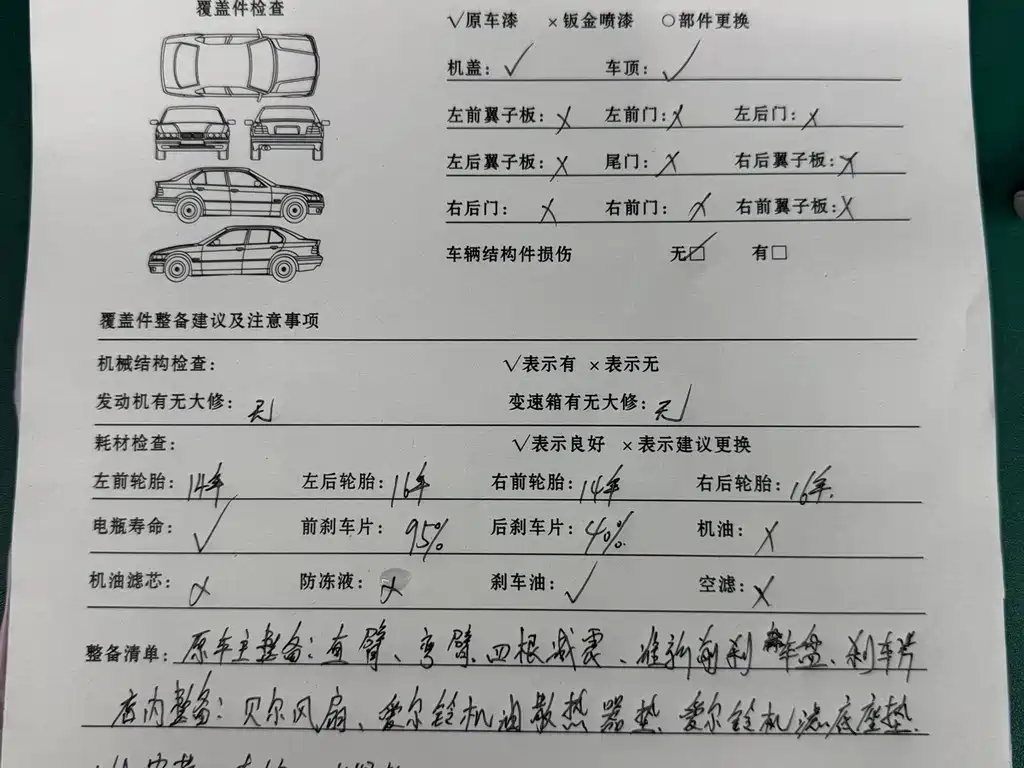 覆盖件检查
√原车漆 ×钣金喷漆 ○部件更换
机盖：√ 车顶：√
左前翼子板：× 左前门：× 左后门：×
左后翼子板：× 尾门：× 右后翼子板：×
右后门：× 右前门：× 右前翼子板：×
车辆结构件损伤 无☑ 有□
覆盖件整备建议及注意事项
机械结构检查： √表示有 ×表示无
发动机有无大修：无 变速箱有无大修：无
耗材检查： √表示良好 ×表示建议更换
左前轮胎：14年 左后轮胎：16年 右前轮胎：14年 右后轮胎：16年.
电瓶寿命：√ 前刹车片：95% 后刹车片：40% 机油：×
机油滤芯：× 防冻液：× 刹车油：√ 空滤：×
整备清单：原车主整备：直臂、弯臂、四根减震、准新前刹车盘、刹车片
店内整备：贝尔风扇、爱尔铃机油散热器垫、爱尔铃机滤底座垫、